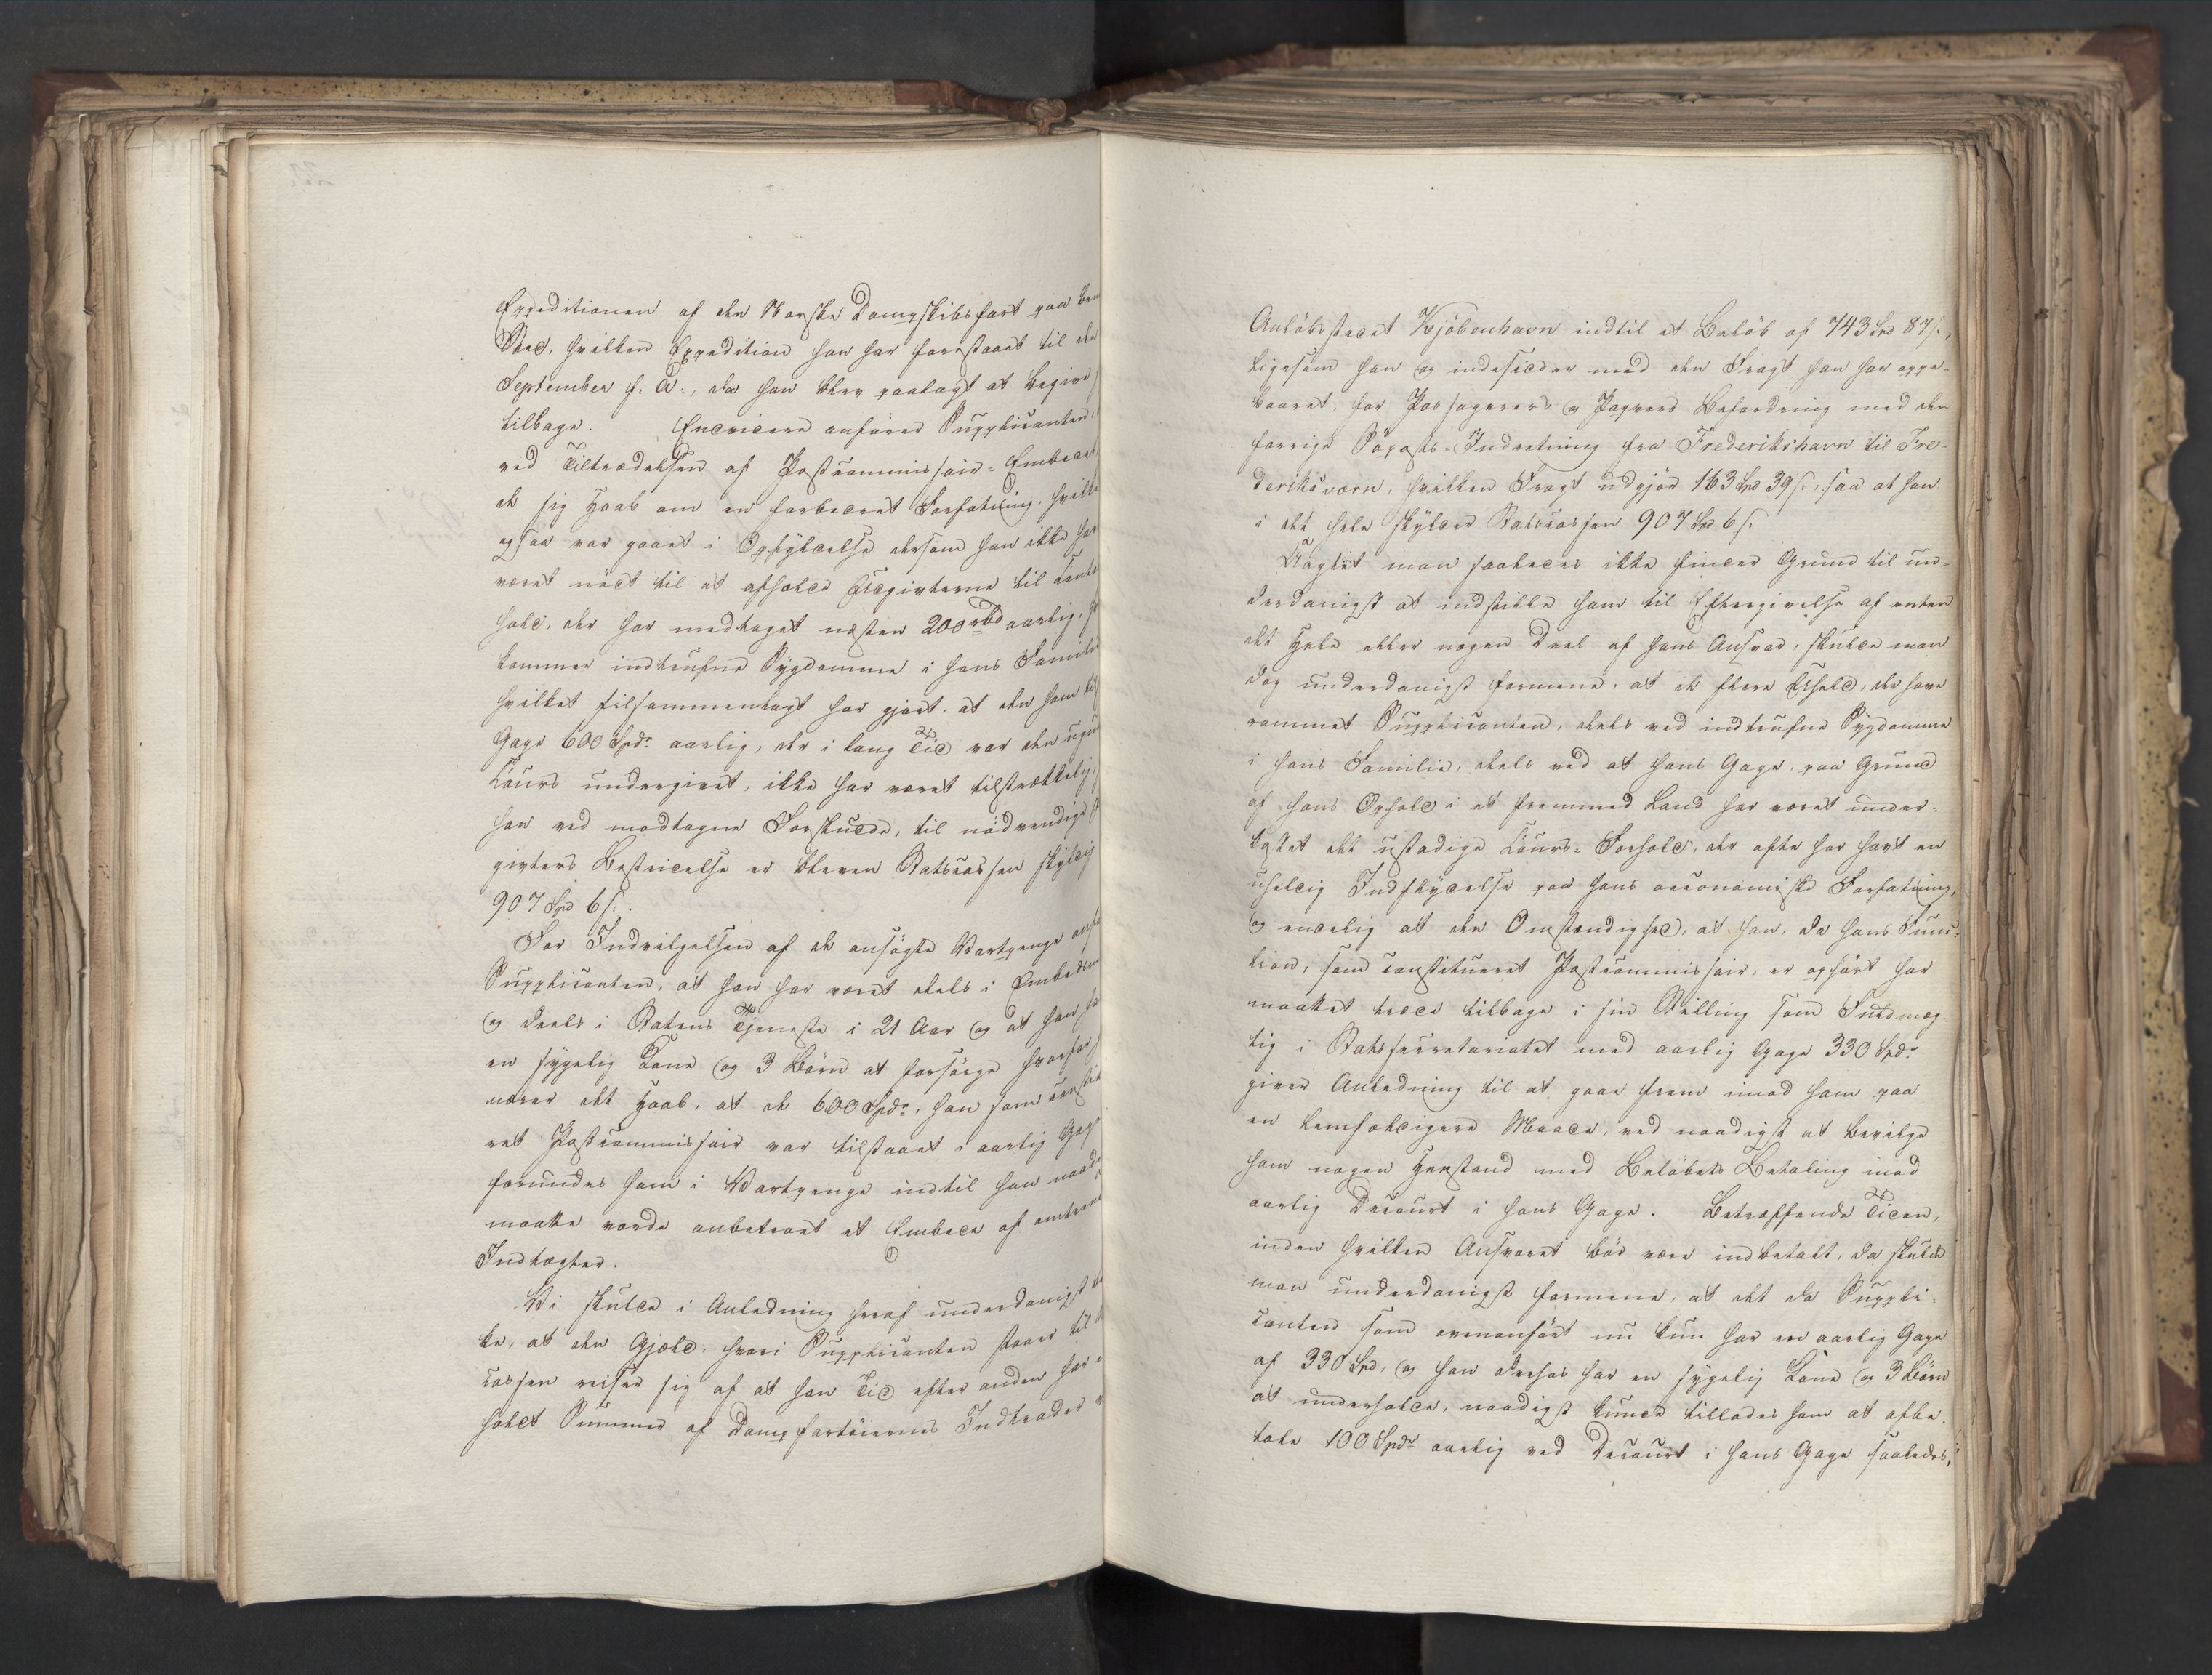 Expeditionen af den Norske Dampskibsfart paa
Sted, hvilken Expedition han har forestaaet til
September f. A., da han blev paalagt at begive
tilbage. Endvidere anfører Supplicanten,
ved Tiltrædelsen af Postcommissair-Embedet
de sig Haab om en forbedret Forfatning,
ogsaa var gaaet i Opfyldelse dersom han ikke
været nødt til at afholde Udgivterne til
hold, der har medtaget næsten 200 rbd aarlig,
kommer indtrufne Sygdomme i hans
hvilket tilsammenlagt har gjort, at den ham
Gage 600 Spdr aarlig, der i lang Tid var den
Cours undergivet, ikke har været tilstrækkelig,
han ved modtagne Forskudde, til nødvendige
givters Bestridelse er bleven Statscassen skyldig
907 Spd 6 s.
For Indvilgelsen af de ansøgte Vartpenge
Supplicanten, at han har været deels i
og deels i Statens Tjeneste i 21 Aar og at han
en sygelig Kone og 3 Børn at forsørge hvorfor
nærer det Haab, at de 600 Spdr, han som
ret Postcommissair var tilstaaet i aarlig
forundes ham i Vartpenge indtil han
maatte vorde anbetroet et Embede af
Indtægter.
Vi skulde i Anledning heraf underdanigst
ke, at den Gjæld, hvori Supplicanten staaer til
cassen reiser sig af at han Tid efter anden har
holdt Summer af Dampfartøiernes Indtrader
Anløbsstedet Kjøbenhavn indtil et Beløb af 743 Spd 87 s.,
ligesom han og indesidder med den Fragt han har oppe-
baaret, for Passagerers og Pagvers Befordring med den
forrige Søposts-Indretning fra Frederikshavn til Fre-
deriksværn, hvilken Fragt udgjør 163 Spd 39 s., saa at han
i det hele skylder Statscassen 907 Spd 6 s.
Uagtet man saaledes ikke finder Grund til un-
derdanigst at indstille ham til Eftergivelse af enten
det Hele eller nogen Deel af hans Ansvar, skulde man
dog underdanigst formene, at de flere Uheld, der have
rammet Supplicanten, deels ved indtrufne Sygdomme
i hans Familie, deels ved at hans Gage, paa Grund
af hans Ophold i et fremmed Land har været under-
kastet det ustadige Cours-Forhold, der ofte har havt en
uheldig Indflydelse paa hans oeconomiske Forfatning,
og endelig at den Omstændighed, at han, da hans Func-
tion, som constitueret Postcommissair, er ophørt har
maattet træde tilbage i sin Stilling som Fuldmæg-
tig i Statssecretariatet med aarlig Gage 330 Spdr
giver Anledning til at gaae frem imod ham paa
en lemfældigere Maade, ved naadigst at bevilge
ham nogen Henstand med Beløbets Betaling imod
aarlig Decourt i hans Gage. Betræffende Tiden,
inden hvilken Ansvaret bør være indbetalt, da skulde
man underdanigst formene, at det da Suppli-
canten som ovenanført nu kun har en aarlig Gage
af 330 Spd, og han derhos har en sygelig Kone og 3 Børn
at underholde, naadigst kunde tillades ham at afbe-
tale 100 Spdr aarlig ved Decourt i hans Gage saaledes,